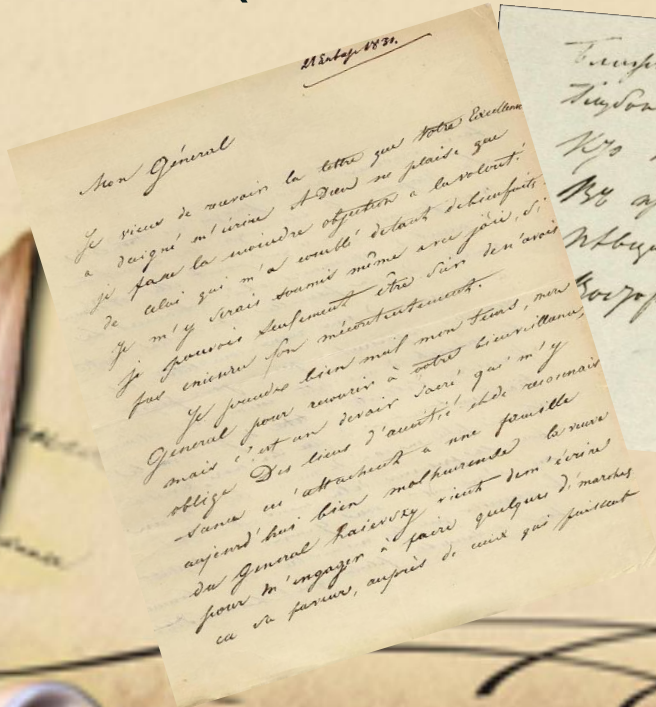 1830.
Mon Général
Je viens de recevoir la lettre que Votre Excellence
a daigné m'écrire A Dieu ne plaise que
je fasse la moindre objection a la volonté
de celui qui m'a comblé detant debienfaits
Je m'y serais soumis même avec joie, si
je pouvois seulement être sûr den'avoir
pas encouru son mécontentement.
Je prends bien mal mon temps, mon
General pour recourir à votre bienveillance,
mais c'est un devoir sacré qui m'y
oblige Des liens d'amitié et de reconnais
-sance m'attachent a une famille
aujourd'hui bien malheureuse la veuve
du General Raievsky vient dem'écrire
pour m'engager à faire quelques démarches
en sa faveur, auprès de ceux qui puissent